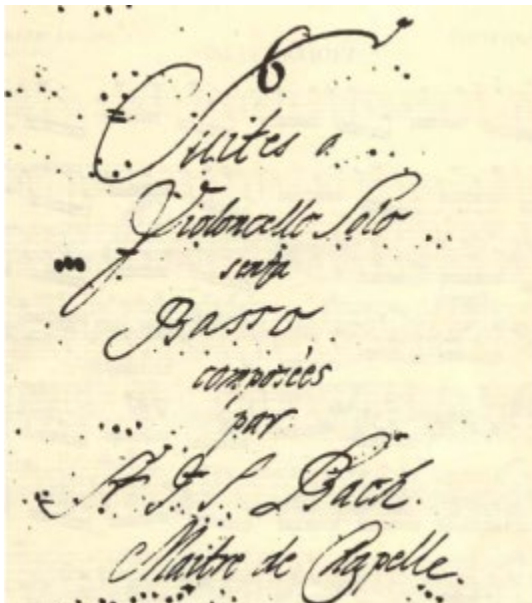 Suites a
Violoncello Solo
senza
Basso
composées
par
Sr J. S. Bach.
Maitre de Chapelle.